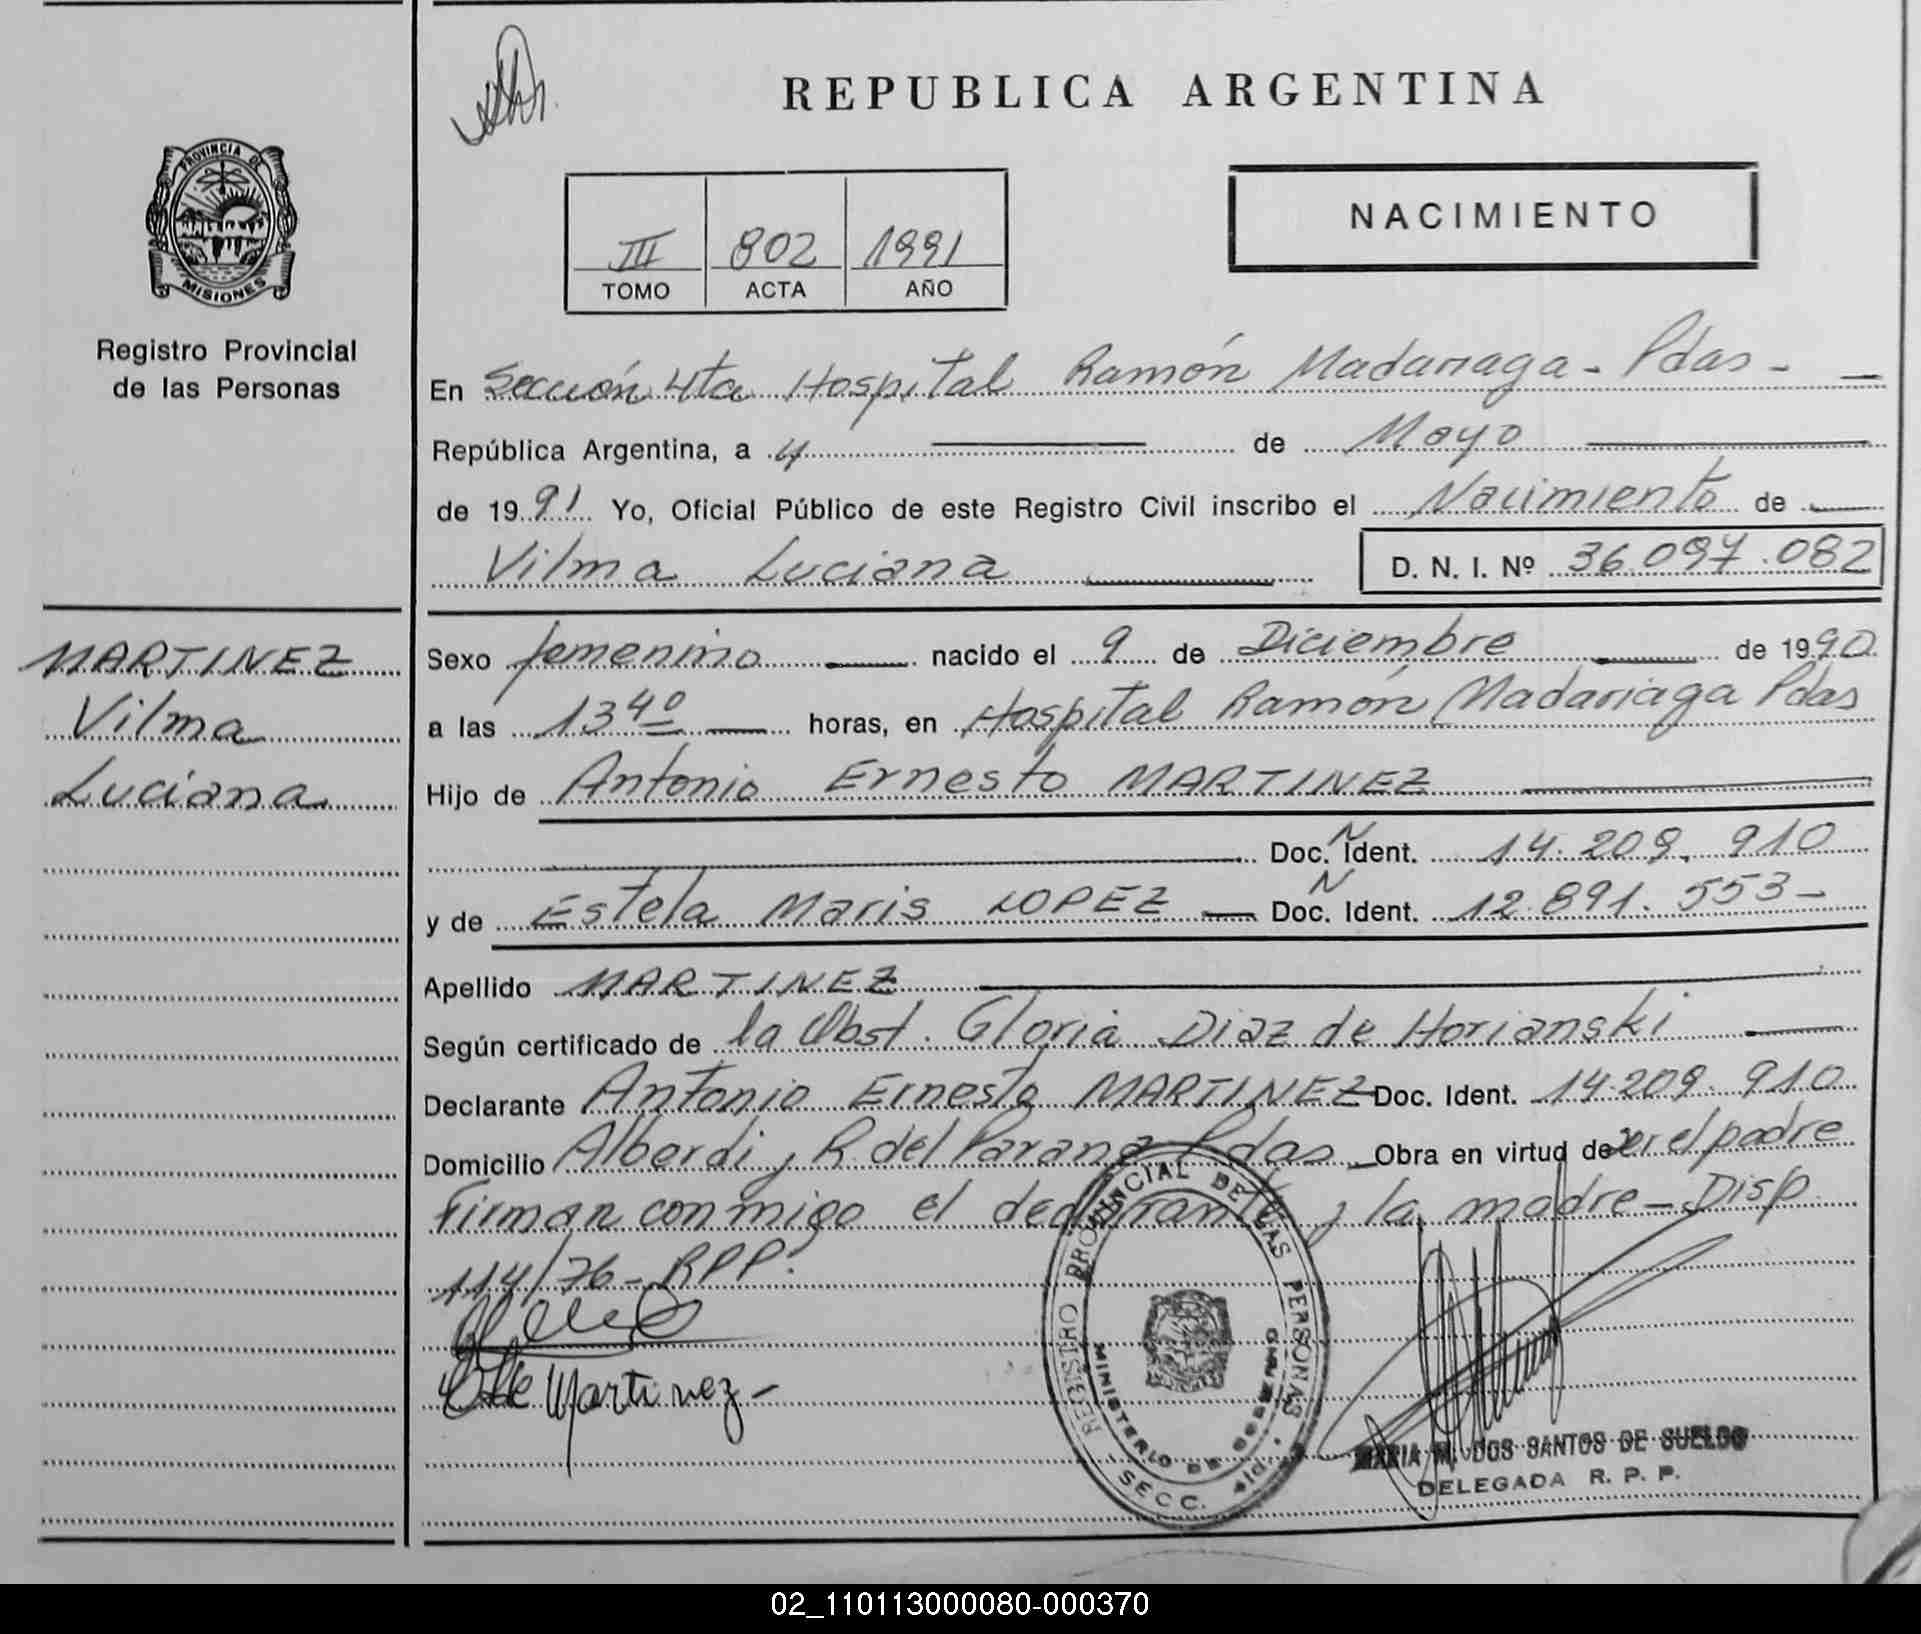 REPUBLICA ARGENTINA
PROVINCIA DE
MISIONES
Registro Provincial
de las Personas
III 802 1991
TOMO ACTA AÑO
NACIMIENTO
En Sección 4ta Hospital Ramón Madariaga - Pdas -
República Argentina, a 4 de Mayo
de 1991 Yo, Oficial Público de este Registro Civil inscribo el Nacimiento de
Vilma Luciana D. N. I. Nº 36.097.082
MARTINEZ
Vilma
Luciana
Sexo femenino nacido el 9 de Diciembre de 1990
a las 13 40 horas, en Hospital Ramón Madariaga Pdas
Hijo de Antonio Ernesto MARTINEZ
Doc. N Ident. 14.209.910
y de Estela Maris LOPEZ Doc. N Ident. 12.891.553-
Apellido MARTINEZ
Según certificado de la Obst. Gloria Diaz de Horianski
Declarante Antonio Ernesto MARTINEZ Doc. Ident. 14.209.910
Domicilio Alberdi y R. del Parana Pdas - Obra en virtud de ser el padre
Firman conmigo el declarante y la madre - Disp
114/76 - RPP.
Martinez -
REGISTRO PROVINCIAL DE LAS PERSONAS
MINISTERIO DE GOBIERNO
SECC. 4ta
MARIA M. DOS SANTOS DE SUELDO
DELEGADA R. P. P.
02_110113000080-000370